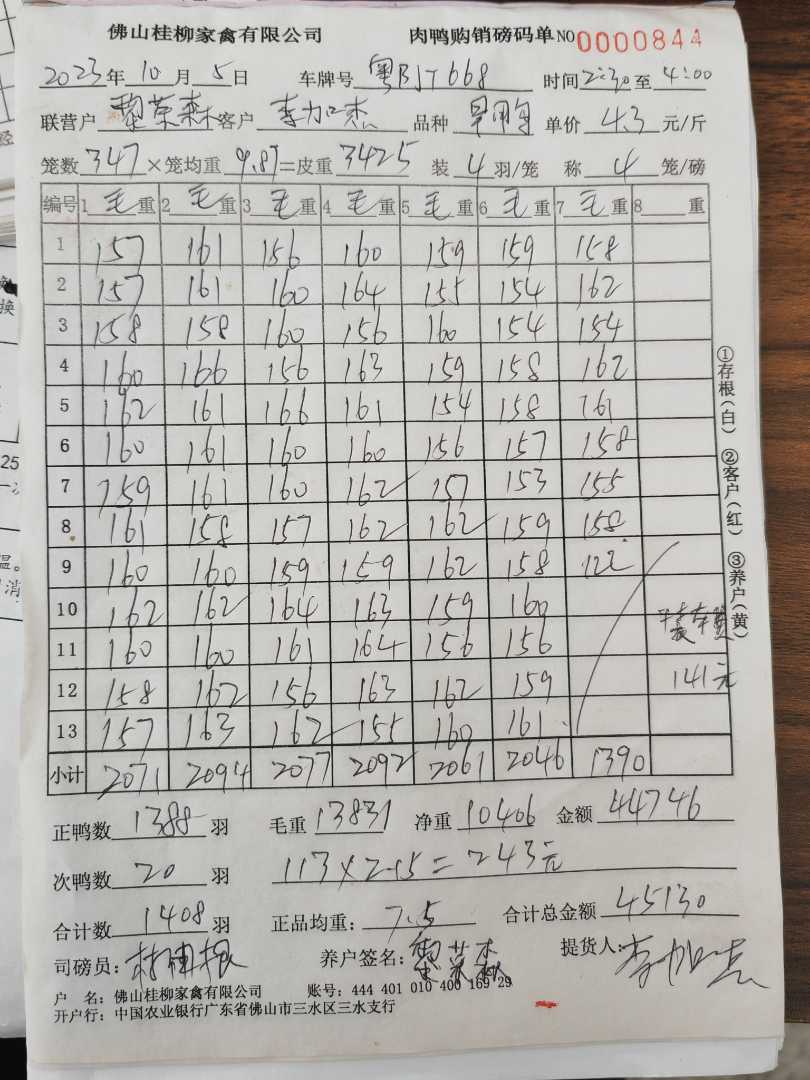 佛山桂柳家禽有限公司 肉鸭购销磅码单 NO 0000844
2023年10月5日 车牌号 粤BJT668 时间 2:30至4:00
联营户 黎荣森 客户 李加杰 品种 单价 4.3 元/斤
笼数 347 ×笼均重 9.87 =皮重 3425 装 4 羽/笼 称 4 笼/磅
编号 1 毛 重 2 毛 重 3 毛 重 4 毛 重 5 毛 重 6 毛 重 7 毛 重 8 重
1 157 161 156 160 159 159 158
2 157 161 160 164 155 154 162
3 158 158 160 156 160 154 154
4 160 166 156 163 159 158 162
5 162 161 166 161 154 158 161
6 160 161 160 160 156 157 158
7 159 161 160 162 157 153 155
8 161 158 157 162 162 159 158
9 160 160 159 159 162 158 122
10 162 162 164 163 159 160
11 160 160 161 164 156 156
12 158 162 156 163 162 159 141元
13 157 163 162 155 160 161
小计 2071 2094 2077 2092 2061 2046 1390
正鸭数 1388 羽 毛重 13831 净重 10406 金额 44746
次鸭数 20 羽 113×2.15=243元
合计数 1408 羽 正品均重: 7.5 合计总金额 45130
司磅员: 养户签名: 黎荣森 提货人: 李加杰
户 名: 佛山桂柳家禽有限公司 账号: 444 401 010 400 169 29
开户行: 中国农业银行广东省佛山市三水区三水支行
①存根(白) ②客户(红) ③养户(黄)